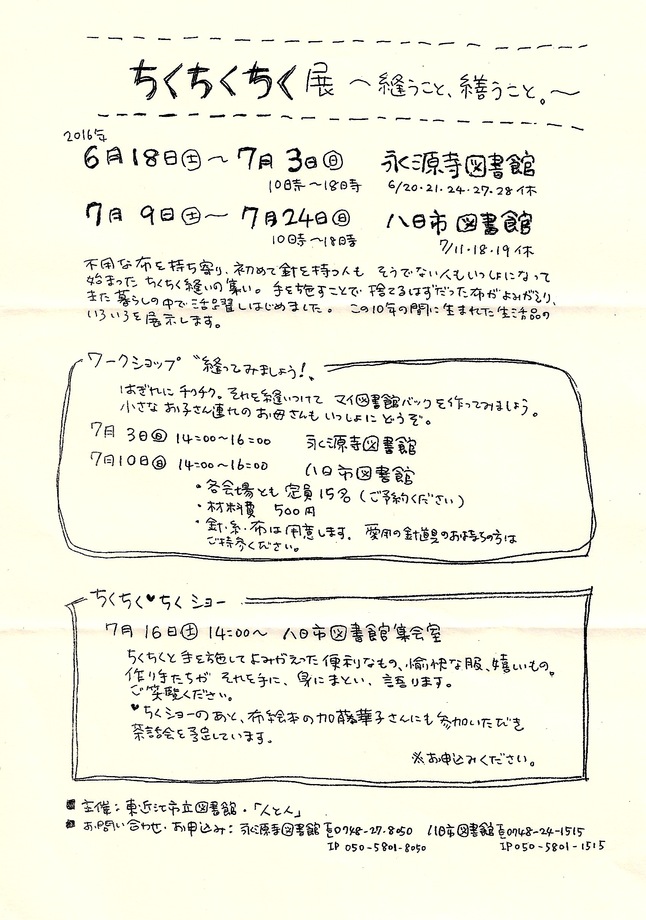 ちくちくちく展 〜縫うこと、繕うこと。〜
2016年
6月18日㊏〜7月3日㊐ 永源寺図書館
10時〜18時 6/20・21・24・27・28休
7月9日㊏〜7月24日㊐ 八日市図書館
10時〜18時 7/11・18・19休
不用な布を持ち寄り、初めて針を持つ人も そうでない人もいっしょになって
始まった ちくちく縫いの集い。手を施すことで 捨てるはずだった布がよみがえり、
また暮らしの中で活躍しはじめました。この10年の間に生まれた生活品の
いろいろを展示します。
ワークショップ〝縫ってみましょう!〟
はぎれに チクチク。それを縫いつけて マイ図書館バックを作ってみましょう。
小さな お子さん連れの お母さんも いっしょに どうぞ。
7月3日㊐ 14:00〜16:00 永源寺図書館
7月10日㊐ 14:00〜16:00 八日市図書館
・各会場とも 定員15名(ご予約ください)
・材料費 500円
・針・糸・布は用意します。愛用の針道具のお持ちの方は
ご持参ください。
ちくちく♥ちくショー
7月16日㊏ 14:00〜 八日市図書館集会室
ちくちくと手を施してよみがえった便利なもの、愉快な服、嬉しいもの。
作り手たちが それを手に、身にまとい、語ります。
ご笑覧ください。
♥ちくショーのあと、布絵本の加藤華子さんにも参加いただき
茶話会を予定しています。
※お申込みください。
■主催:東近江市立図書館・「人と人」
■お問い合わせ・お申込み:永源寺図書館℡0748-27-8050 八日市図書館℡0748-24-1515
IP 050-5801-8050 IP 050-5801-1515